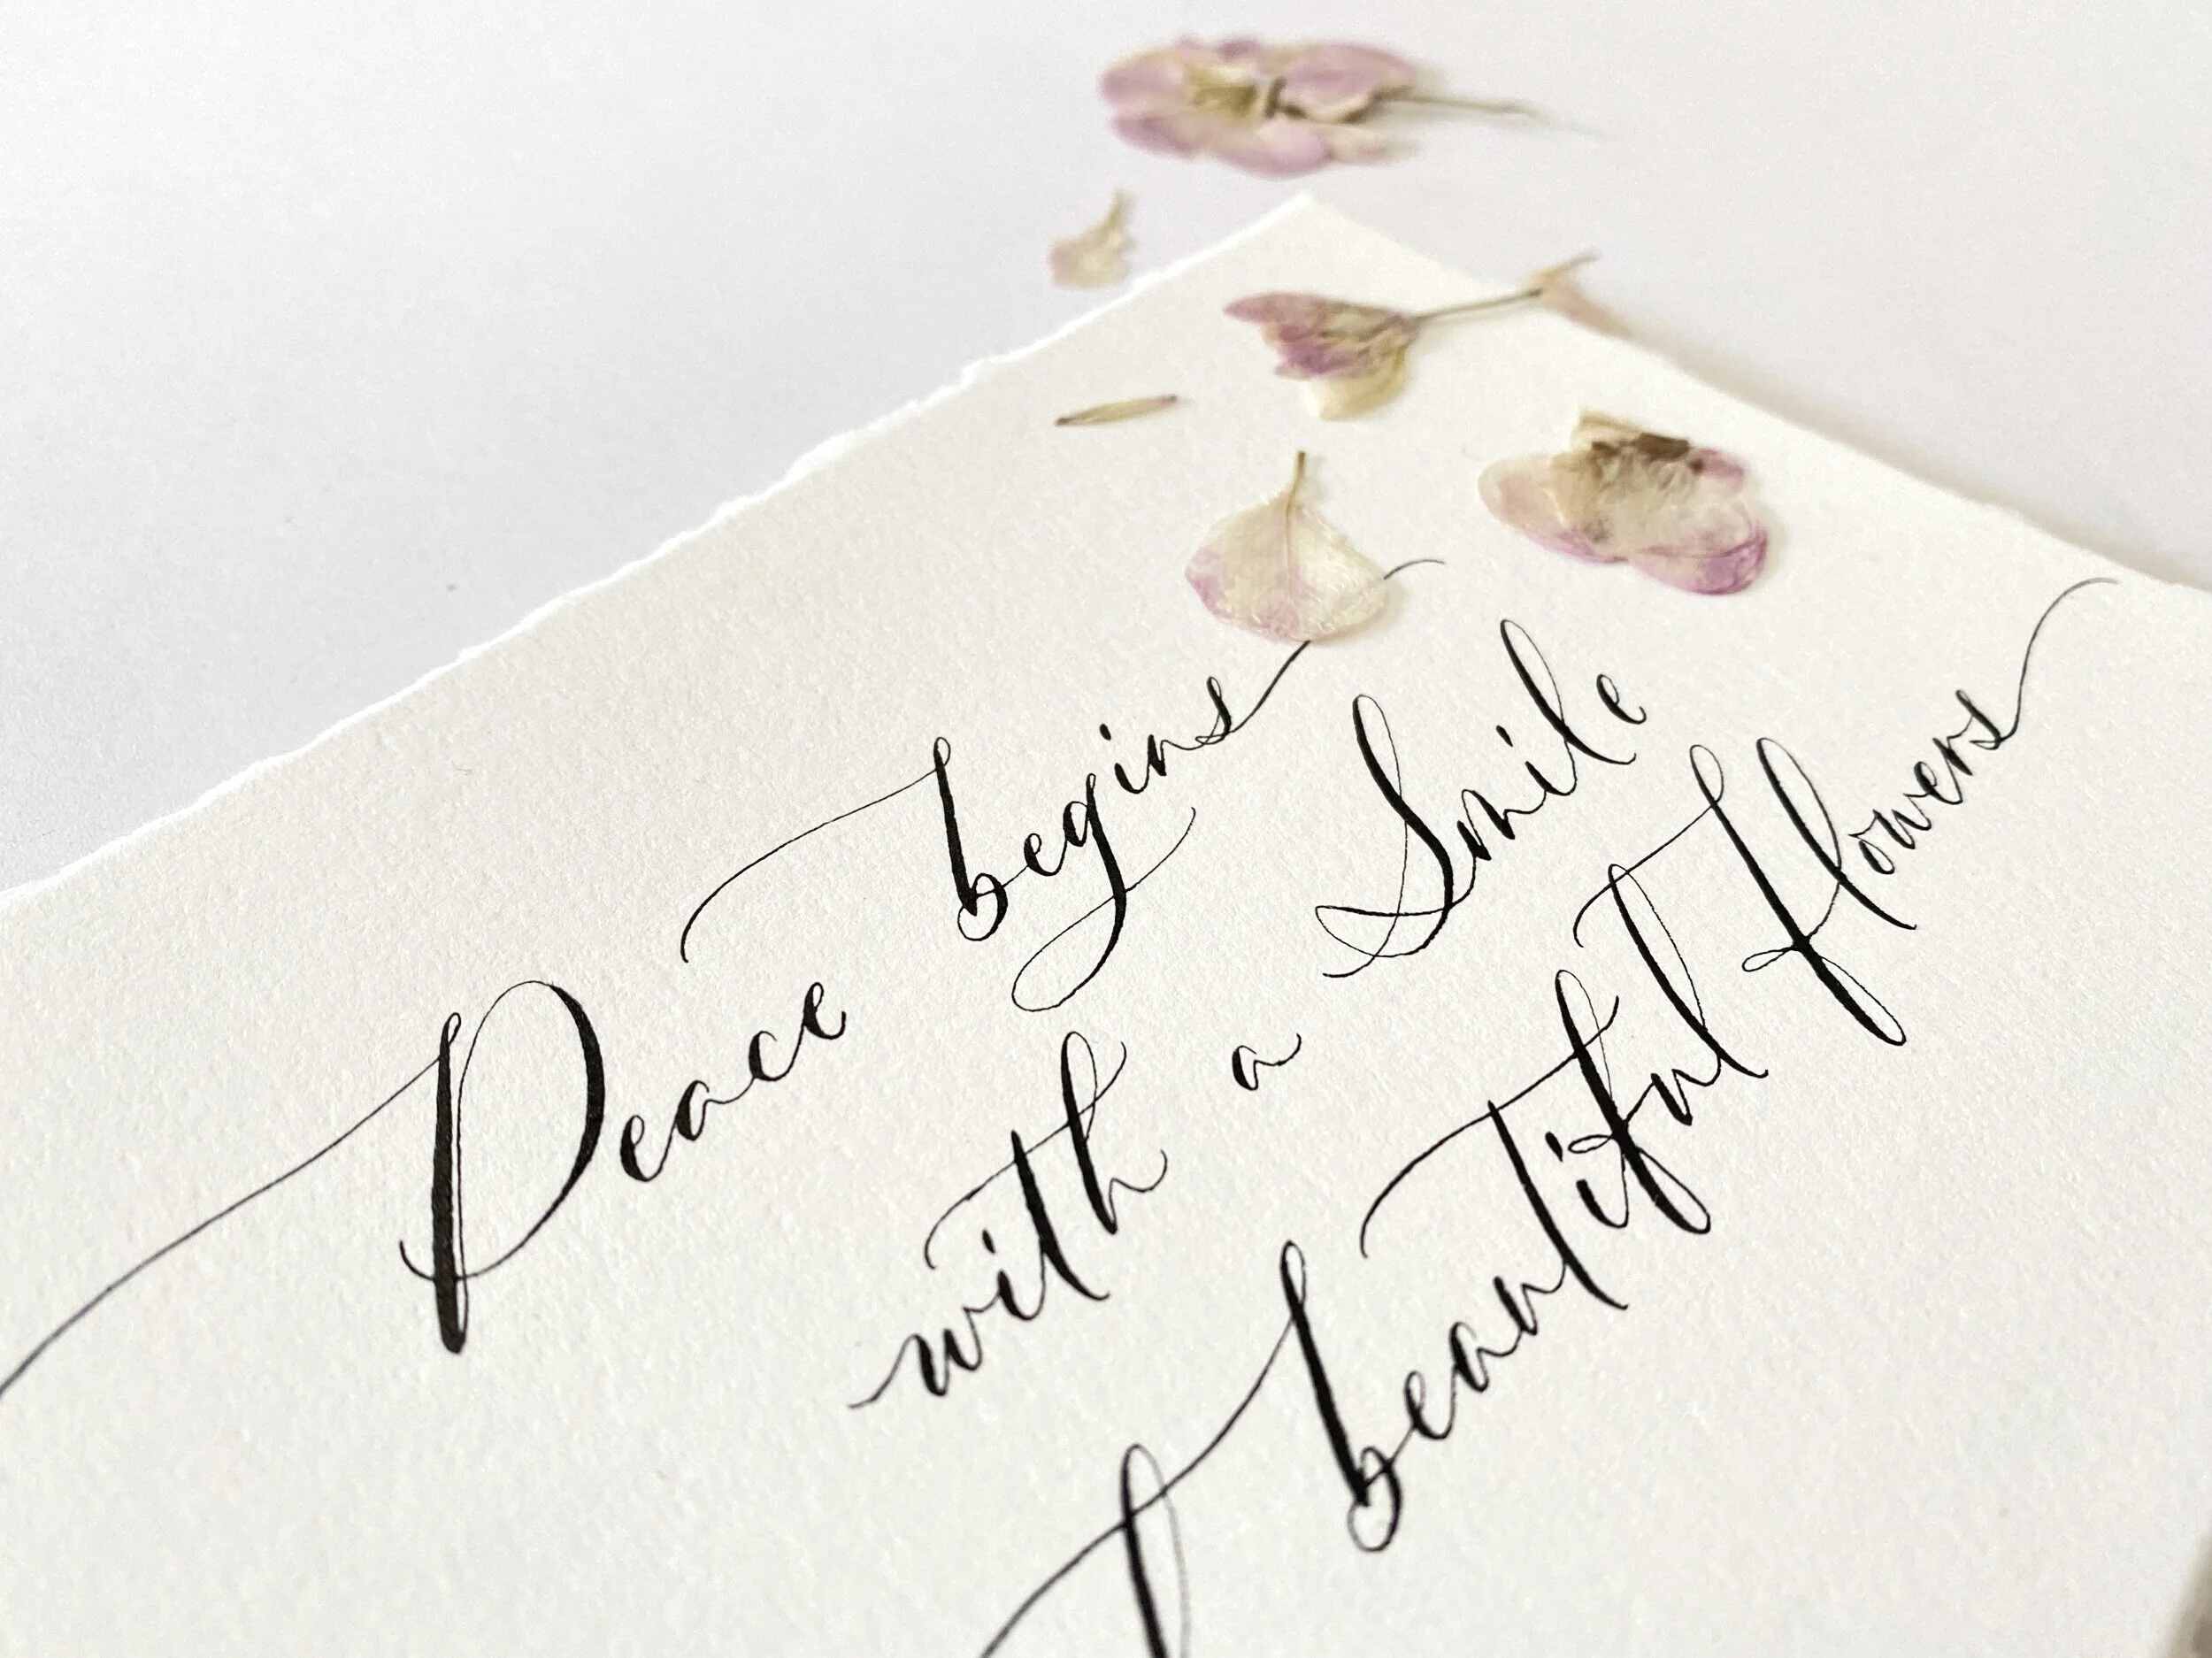 Peace begins
with a Smile
beautiful flowers